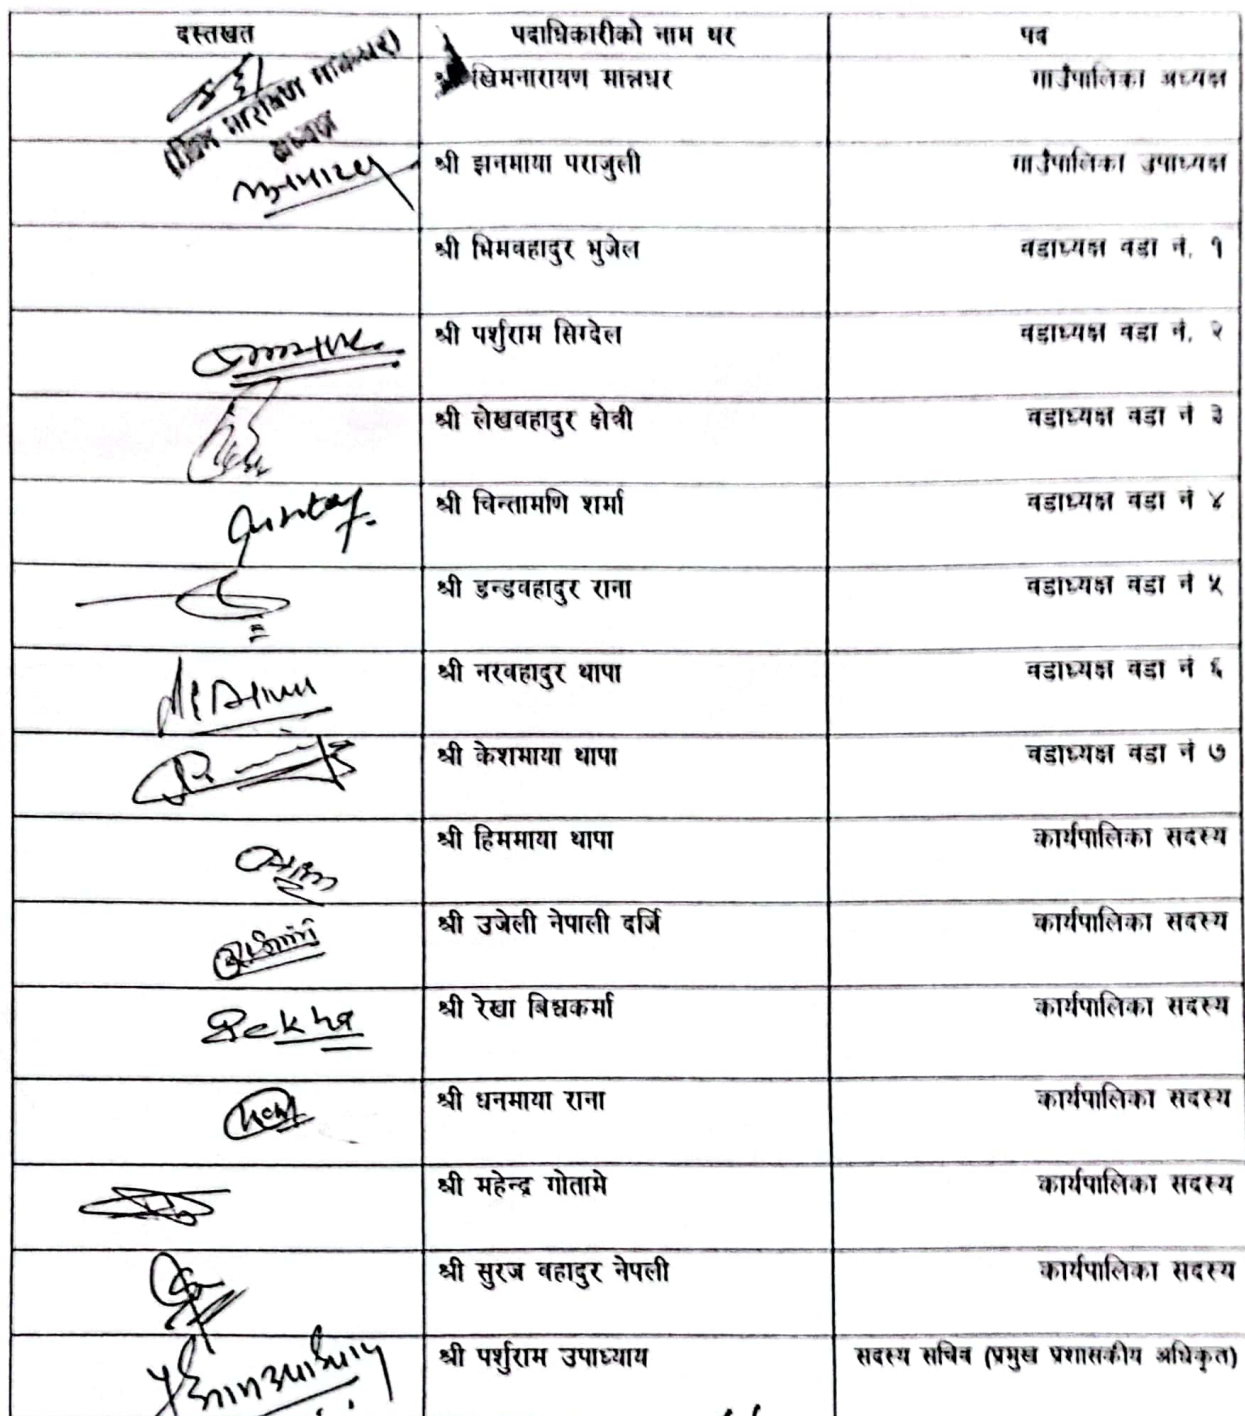 दस्तखत पदाधिकारीको नाम थर पद
श्री खिमनारायण मास्रधर गाउँपालिका अध्यक्ष
(खिम नारायण मास्कधर)
अध्यक्ष
श्री झनमाया पराजुली गाउँपालिका उपाध्यक्ष
श्री भिमवहादुर भुजेल वडाध्यक्ष वडा नं. १
श्री पर्शुराम सिग्देल वडाध्यक्ष वडा नं. २
श्री लेखवहादुर क्षेत्री वडाध्यक्ष वडा नं ३
श्री चिन्तामणि शर्मा वडाध्यक्ष वडा नं ४
श्री डन्डवहादुर राना वडाध्यक्ष वडा नं ५
श्री नरवहादुर थापा वडाध्यक्ष वडा नं ६
श्री केशमाया थापा वडाध्यक्ष वडा नं ७
श्री हिममाया थापा कार्यपालिका सदस्य
श्री उजेली नेपाली दर्जि कार्यपालिका सदस्य
Rekha श्री रेखा बिश्वकर्मा कार्यपालिका सदस्य
श्री धनमाया राना कार्यपालिका सदस्य
श्री महेन्द्र गोतामे कार्यपालिका सदस्य
श्री सुरज वहादुर नेपली कार्यपालिका सदस्य
श्री पर्शुराम उपाध्याय सदस्य सचिव (प्रमुख प्रशासकीय अधिकृत)